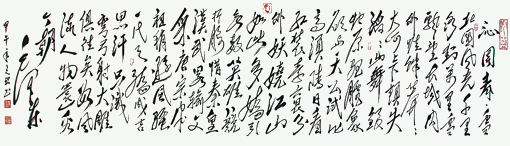 沁园春雪
北国风光千里
冰封万里雪
飘望长城内
外惟余莽莽
大河上下顿失
滔滔山舞银
蛇原驰蜡象
欲与天公试比
高须晴日看
红装素裹分
外妖娆江山
如此多娇引
无数英雄竞
折腰惜秦皇
汉武略输文
采唐宗宋
祖稍逊风骚
一代天骄成吉
思汗只识
弯弓射大雕
俱往矣数风
流人物还看
今朝
毛泽东
甲午年